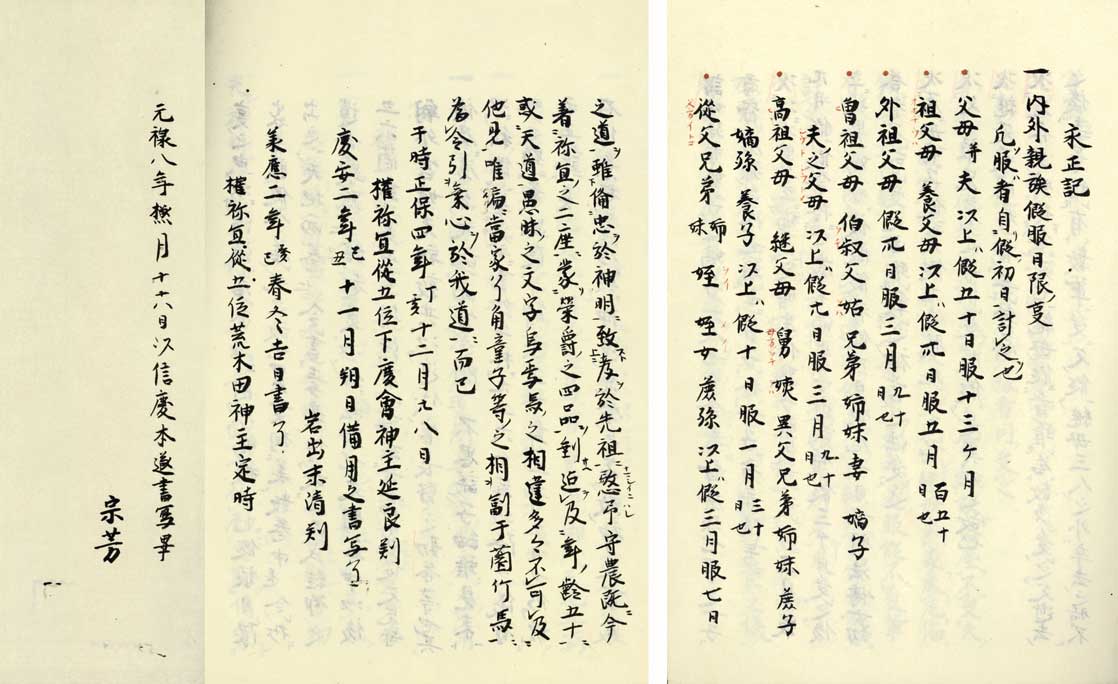 永正記
一 内外親族假服日限、事
凡服者自假初日計之也
父母并夫 以上假五十日服十三ケ月
祖父母 養父母以上假卅日服五月 百五十日也
外祖父母 假卅日服三月 九十日也
曾祖父母 伯叔父 姑 兄弟 姉妹 妻 嫡子
夫之父母 以上假廿日服三月 九十日也
高祖父母 継父母 舅 姨 異父兄弟姉妹 庶子
嫡孫 養子 以上假十日服一月 三十日也
従父兄弟 姉妹 姪 姪女 庶孫 以上假三日服七日
之道雖備忠於神明致孝於先祖 守農 今
着祢宜之二座蒙榮爵之四品到迫及年齢五十
或天道愚昧之文字烏焉馬之相違多々不可及
他見唯 當家 角童子等之相 于 竹馬
為令引 心於我道而已
于時正保四年丁亥十二月 八日
權祢宜従五位下度會神主延良判
慶安二年己丑十一月朔日備用之書写了
岩出末清判
美應二年癸巳春 吉日書了
權祢宜従五位荒木田神主定時
元禄八年 月十六日以信慶本遂書寫畢
宗芳